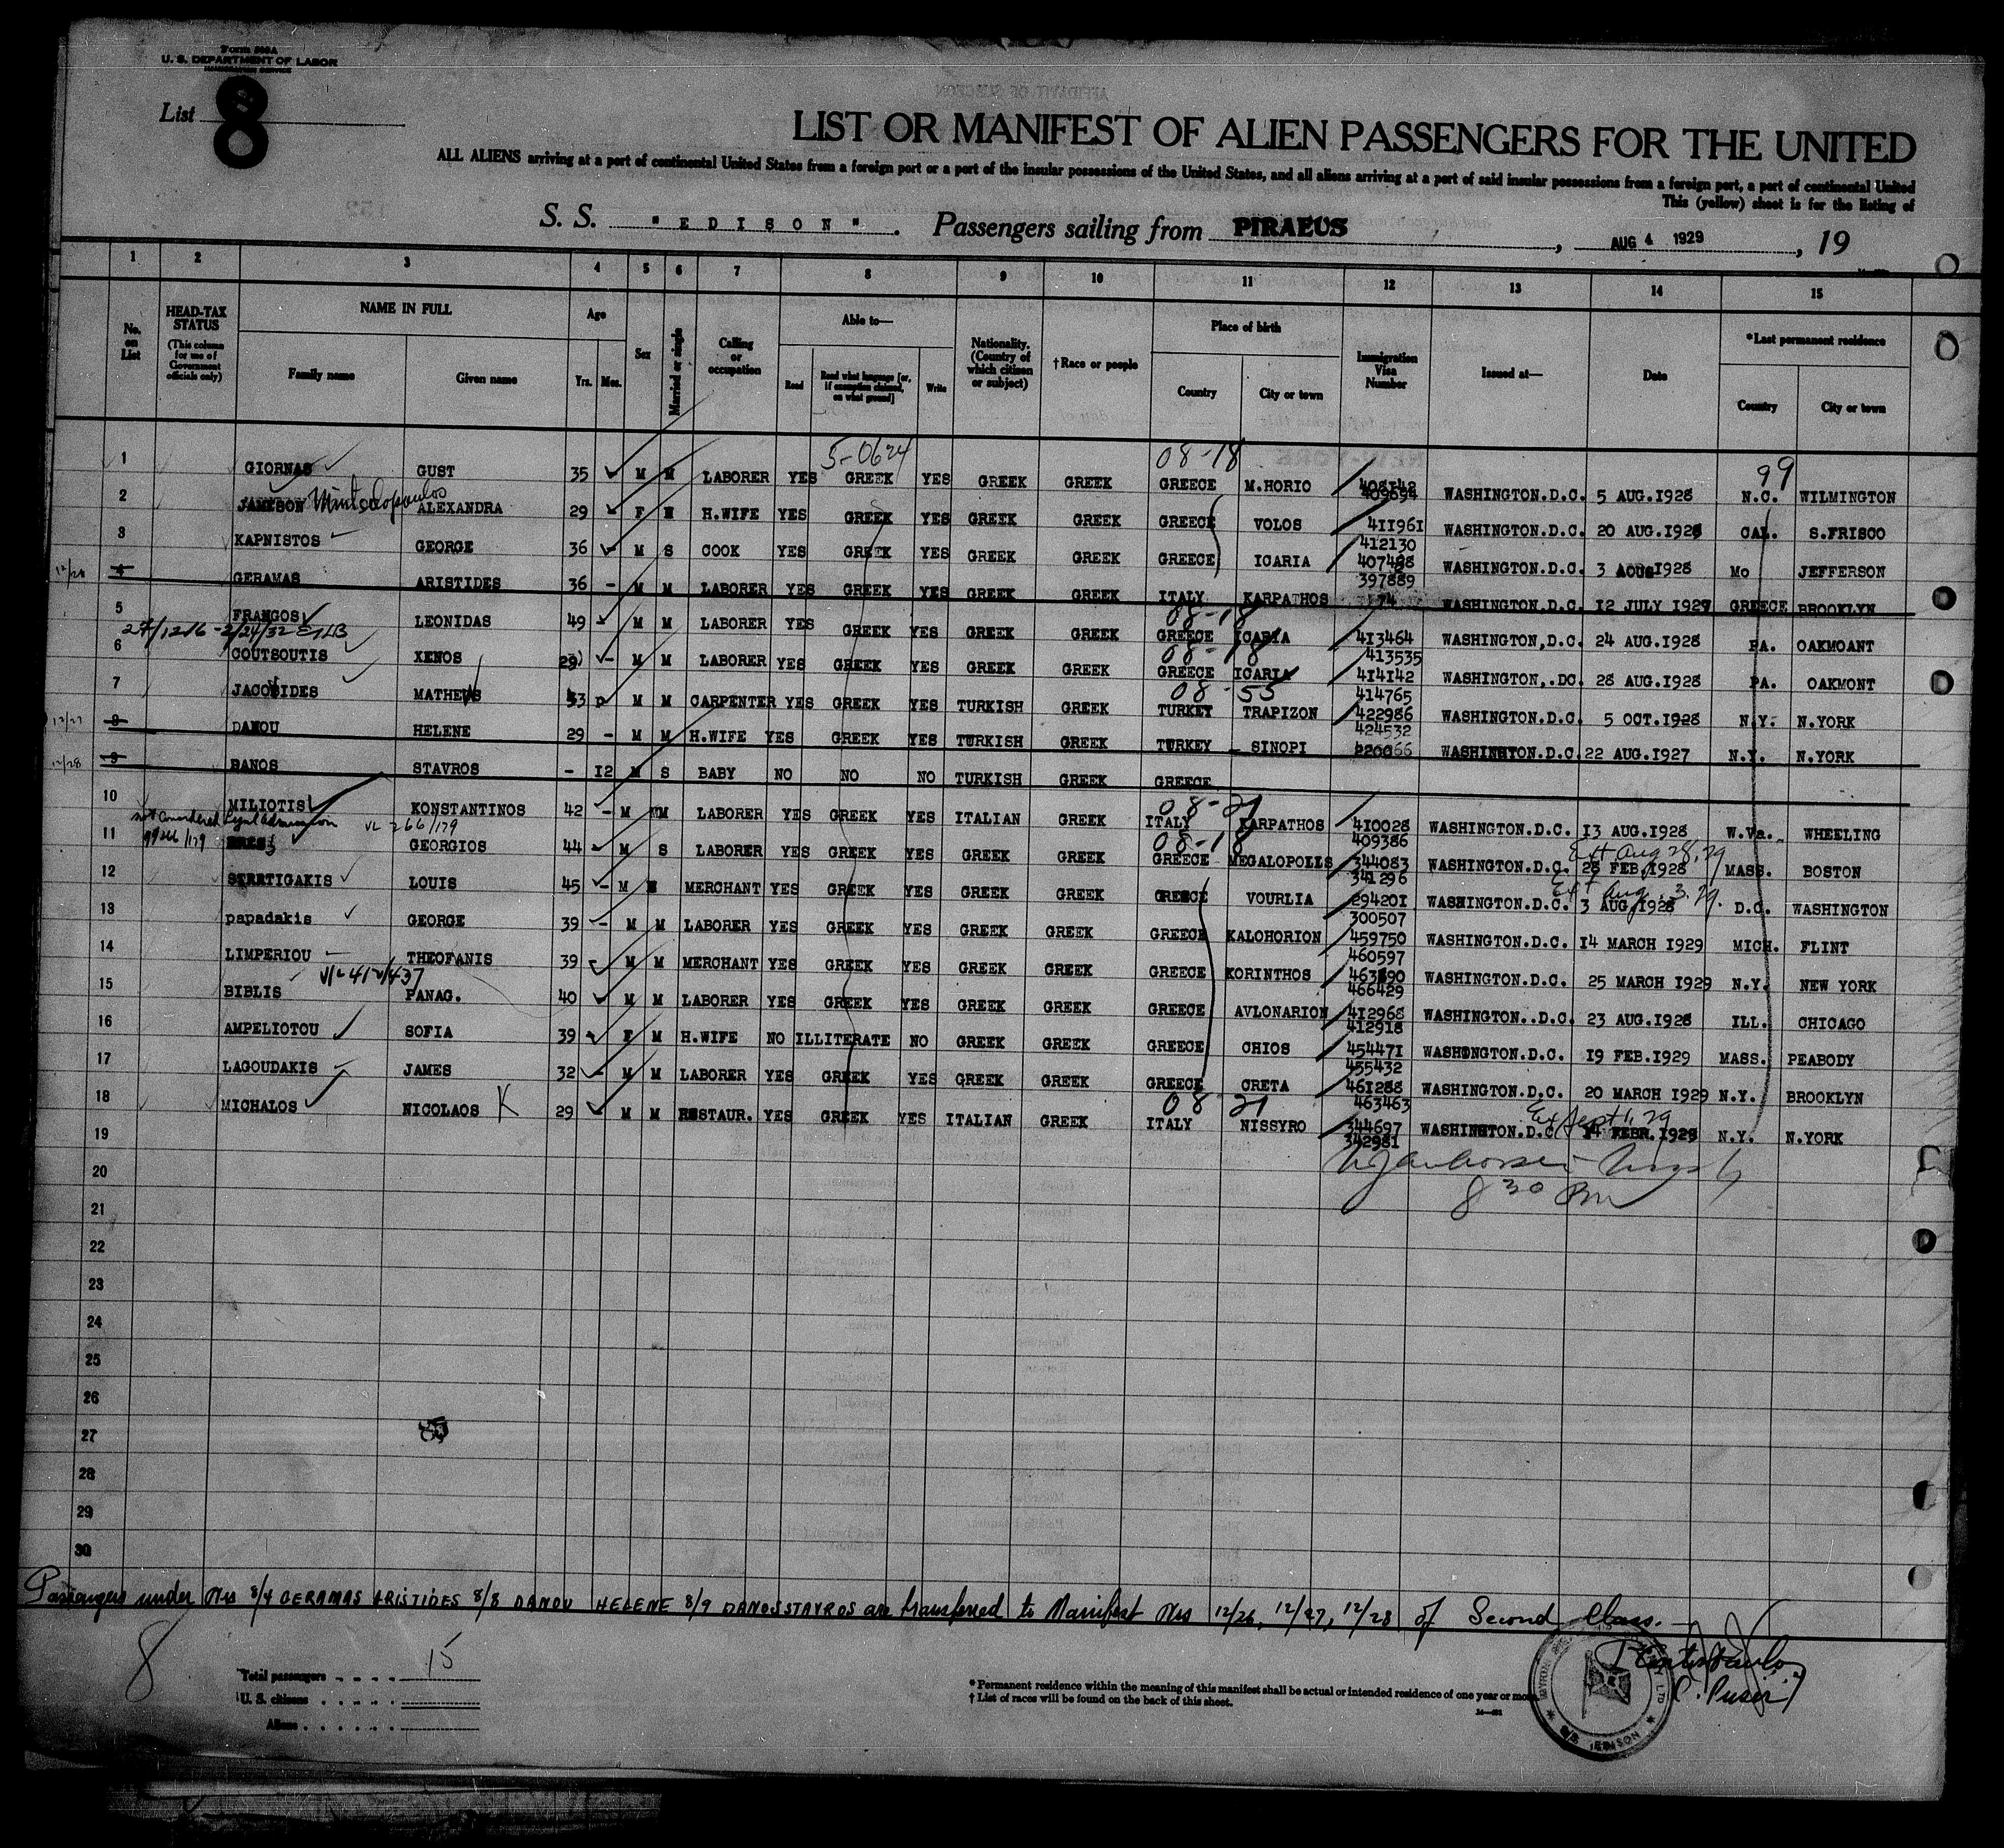 Form 500A
U. S. DEPARTMENT OF LABOR
IMMIGRATION SERVICE
List 8
LIST OR MANIFEST OF ALIEN PASSENGERS FOR THE UNITED
ALL ALIENS arriving at a port of continental United States from a foreign port or a port of the insular possessions of the United States, and all aliens arriving at a port of said insular possessions from a foreign port, a port of continental United
This (yellow) sheet is for the listing of
S. S. "EDISON". Passengers sailing from PIRAEUS, AUG 4 1929, 19
1 2 3 4 5 6 7 8 9 10 11 12 13 14 15
No. on List HEAD-TAX STATUS (This column for use of Government officials only) NAME IN FULL Family name Given name Age Yrs. Mos. Sex Married or single Calling or occupation Able to— Read Read what language [or, if exemption claimed, on what ground] Write Nationality. (Country of which citizen or subject) †Race or people Place of birth Country City or town Immigration Visa Number Issued at— Date *Last permanent residence Country City or town
5-0624 08-18 99
1 GIORNAS GUST 35 M M LABORER YES GREEK YES GREEK GREEK GREECE M.HORIO 408142 409694 WASHINGTON.D.C. 5 AUG.1928 N.C. WILMINGTON
2 JAMESON ALEXANDRA 29 F M H.WIFE YES GREEK YES GREEK GREEK GREECE VOLOS 411961 412130 WASHINGTON.D.C. 20 AUG.1928 CAL. S.FRISCO
3 KAPNISTOS GEORGE 36 - M S COOK YES GREEK YES GREEK GREEK GREECE ICARIA 407488 397889 WASHINGTON.D.C. 3 AOUS1928 Mo JEFFERSON
12/26 4 GERAMAS ARISTIDES 36 - M M LABORER YES GREEK YES GREEK GREEK ITALY KARPATHOS WASHINGTON.D.C. 12 JULY 1927 GREECE BROOKLYN
08-18
5 FRANGOS LEONIDAS 49 M M LABORER YES GREEK YES GREEK GREEK GREECE ICARIA 413464 413535 WASHINGTON,D.C. 24 AUG.1928 PA. OAKMOANT
08-18
6 COUTSOUTIS XENOS 29 - M M LABORER YES GREEK YES GREEK GREEK GREECE ICARIA 414142 414765 WASHINGTON,.DC. 28 AUG.1928 PA. OAKMONT
08-55
7 JACOVIDES MATHEWS 53 M M CARPENTER YES GREEK YES TURKISH GREEK TURKEY TRAPIZON 422986 424532 WASHINGTON.D.C. 5 OCT.1928 N.Y. N.YORK
12/27 8 DANOU HELENE 29 - M M H.WIFE YES GREEK YES TURKISH GREEK TURKEY - SINOPI WASHINGTON.D.C. 22 AUG.1927 N.Y. N.YORK
12/28 9 BANOS STAVROS - 12 M S BABY NO NO NO TURKISH GREEK GREECE
08-21
10 MILIOTIS KONSTANTINOS 42 - M M LABORER YES GREEK YES ITALIAN GREEK ITALY KARPATHOS 410028 409386 WASHINGTON.D.C. 13 AUG.1928 W.Va. WHEELING
not considered legal admission
99266/179 VL 266/179 08-18 Ext Aug 28, 29
11 GEORGIOS 44 M S LABORER YES GREEK YES GREEK GREEK GREECE MEGALOPOLLS 344083 341296 WASHINGTON.D.C. 28 FEB.1928 MASS. BOSTON
Ext Aug. 3. 29.
12 STRATIGAKIS LOUIS 45 - M MERCHANT YES GREEK YES GREEK GREEK GREECE VOURLIA 294201 300507 WASHINGTON.D.C. 3 AUG.1928 D.C. WASHINGTON
13 papadakis GEORGE 39 - M M LABORER YES GREEK YES GREEK GREEK GREECE KALOHORION 459750 460597 WASHINGTON.D.C. 14 MARCH 1929 MICH. FLINT
14 LIMPERIOU THEOFANIS 39 M M MERCHANT YES GREEK YES GREEK GREEK GREECE KORINTHOS 466429 WASHINGTON.D.C. 25 MARCH 1929 N.Y. NEW YORK
15 BIBLIS PANAG. 40 M M LABORER YES GREEK YES GREEK GREEK GREECE AVLONARION 412968 412918 WASHINGTON..D.C. 23 AUG.1928 ILL. CHICAGO
16 AMPELIOTOU SOFIA 39 F M H.WIFE NO ILLITERATE NO GREEK GREEK GREECE CHIOS 454471 455432 WASHINGTON.D.C. 19 FEB.1929 MASS. PEABODY
17 LAGOUDAKIS JAMES 32 - M M LABORER YES GREEK YES GREEK GREEK GREECE CRETA 461288 463463 WASHINGTON.D.C. 20 MARCH 1929 N.Y. BROOKLYN
08 21 Ex Sept 1, 29
18 MICHALOS NICOLAOS K 29 M M RESTAUR. YES GREEK YES ITALIAN GREEK ITALY NISSYRO 344697 342981 WASHINGTON.D.C. FEBR.1929 N.Y. N.YORK
19
20
8 30 PM
21
22
23
24
25
26
27
28
29
30
Passengers under Nrs 8/4 GERAMAS ARISTIDES 8/8 DANOU HELENE 8/9 DANOS STAVROS are transferred to Manifest Nrs 12/26, 12/27, 12/28 of Second Class.
8
Total passengers 15
U. S. citizens
Aliens
* Permanent residence within the meaning of this manifest shall be actual or intended residence of one year or more.
† List of races will be found on the back of this sheet.
S/S. EDISON